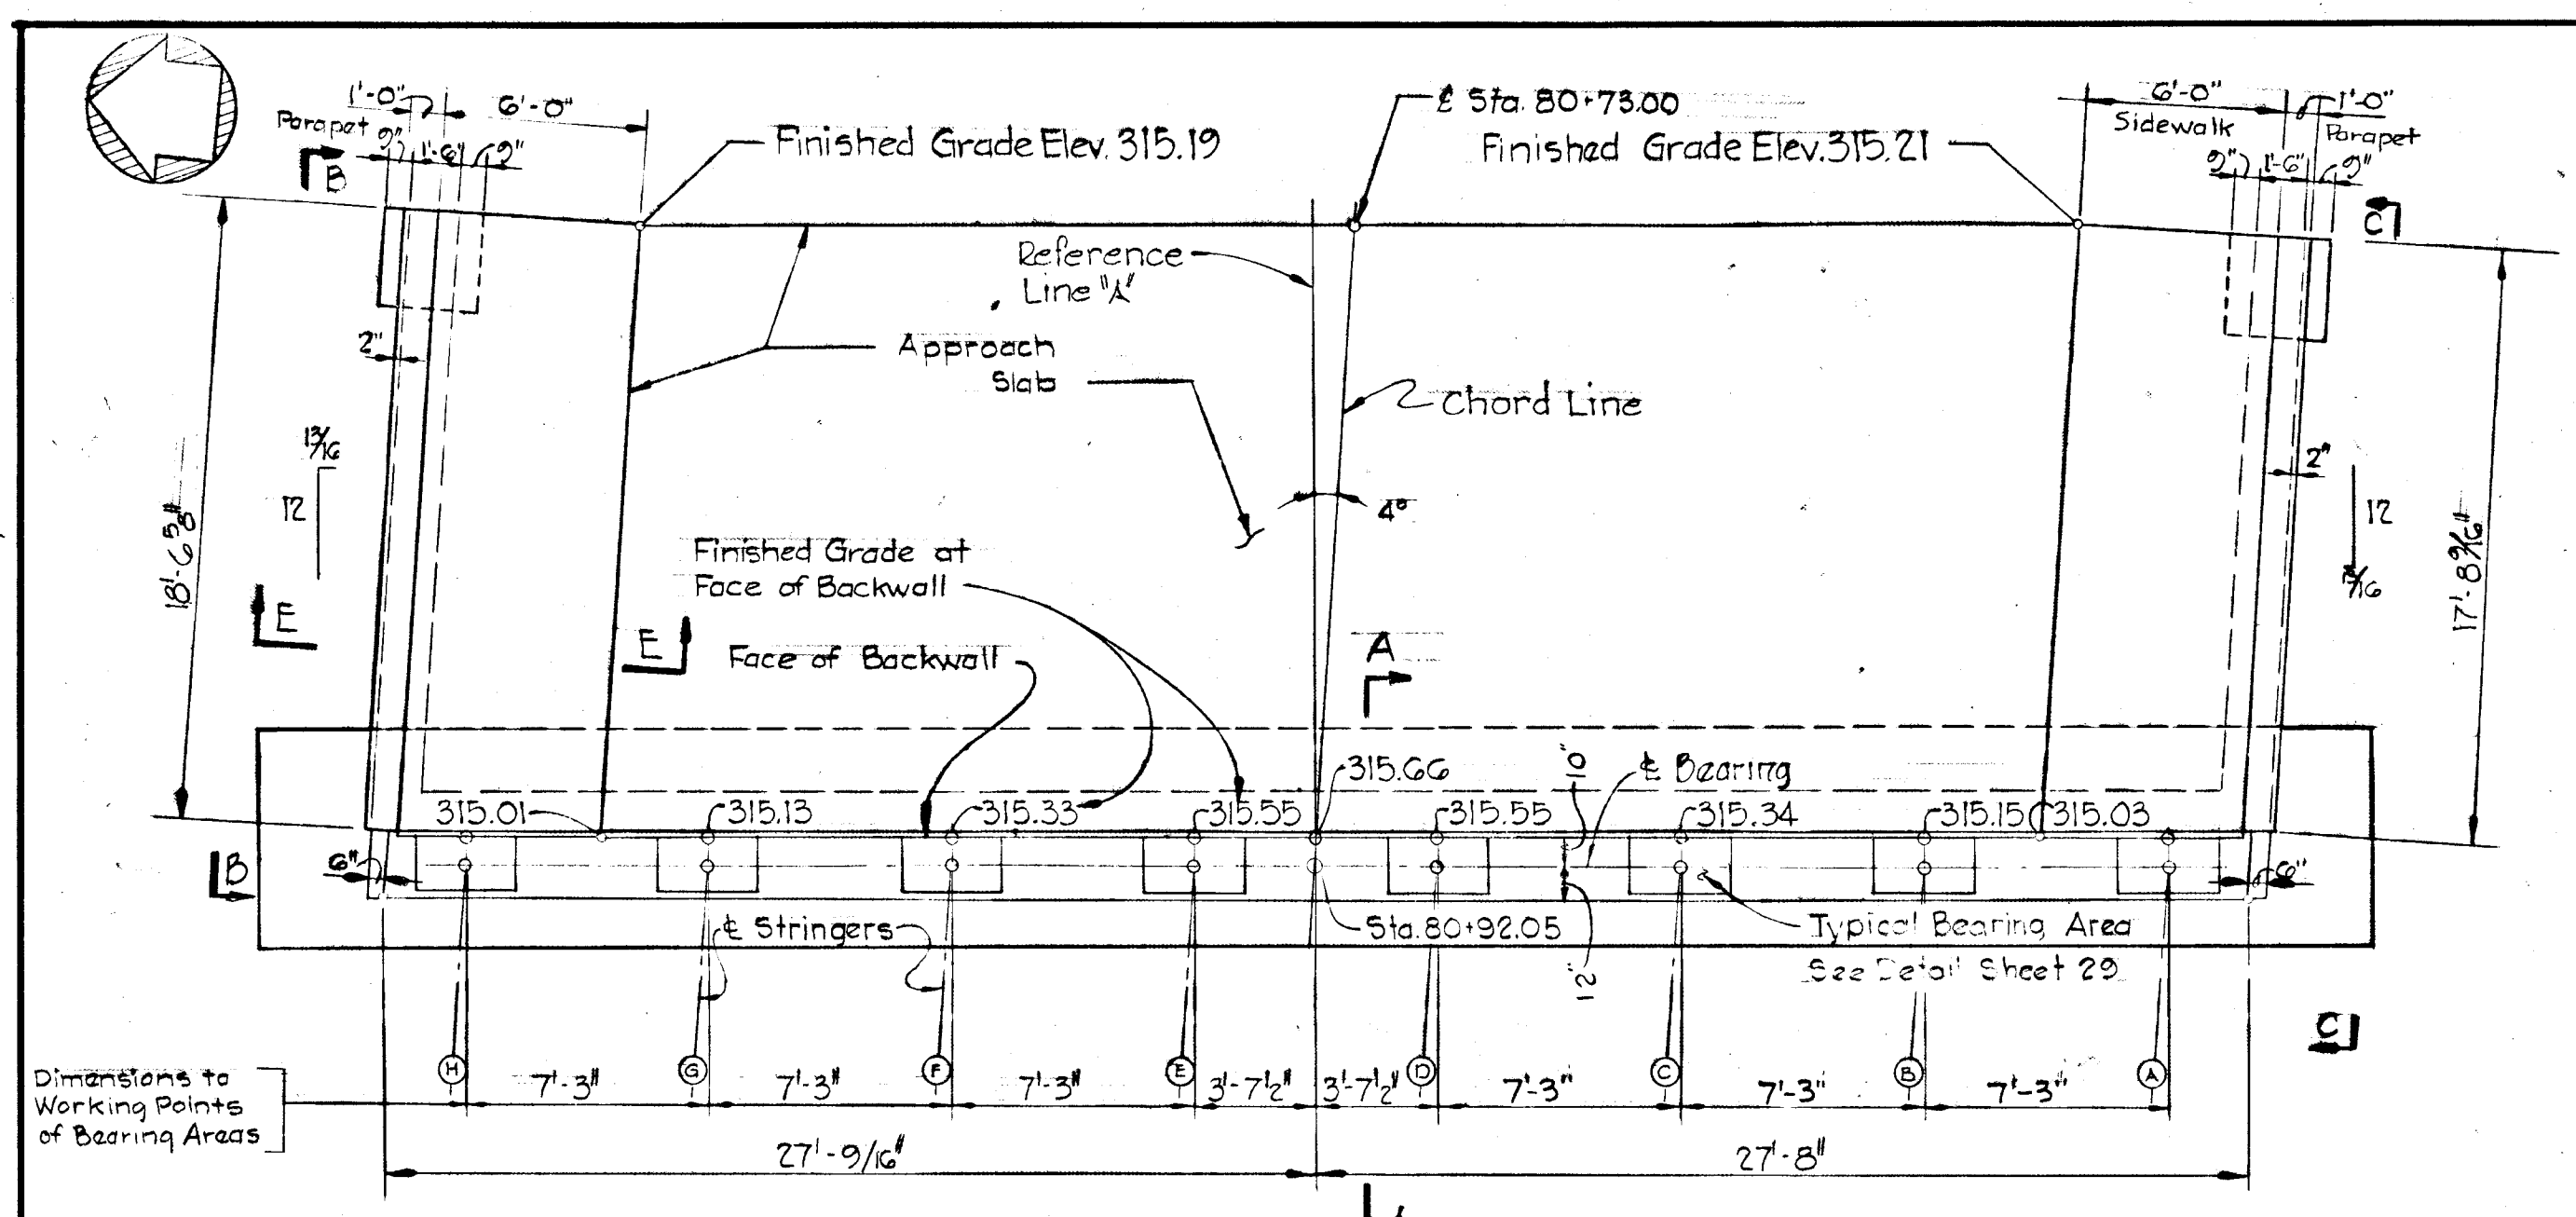 1'-0"
6'-0"
Parapet
9"
1'-6"
9"
B
Finished Grade Elev. 315.19
℄ Sta. 80+73.00
Finished Grade Elev. 315.21
6'-0"
Sidewalk
1'-0"
Parapet
9"
1'-6"
9"
C
Reference
Line "A"
2"
Approach
Slab
Chord Line
13/16
12
18'-6 5/8"
4°
2"
12
13/16
17'-8 9/16"
Finished Grade at
Face of Backwall
E
E
Face of Backwall
A
315.66
10"
℄ Bearing
315.01
315.13
315.33
315.55
315.55
315.34
315.15
315.03
B
6"
6"
℄ Stringers
Sta. 80+92.05
12"
Typical Bearing Area
See Detail Sheet 29
C
H
G
F
E
D
C
B
A
Dimensions to
Working Points
of Bearing Areas
7'-3"
7'-3"
7'-3"
3'-7½"
3'-7½"
7'-3"
7'-3"
7'-3"
27'-9/16"
27'-8"